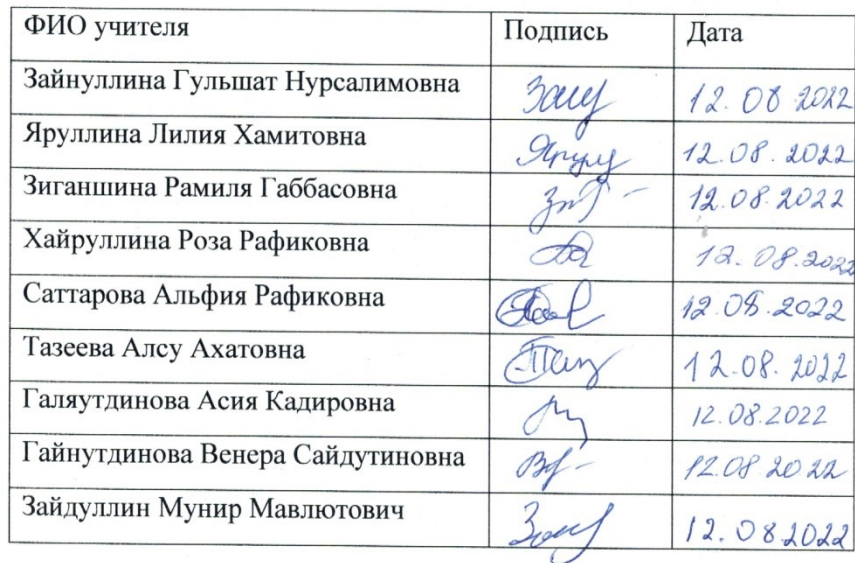 ФИО учителя Подпись Дата
Зайнуллина Гульшат Нурсалимовна 12.08.2022
Яруллина Лилия Хамитовна 12.08.2022
Зиганшина Рамиля Габбасовна 12.08.2022
Хайруллина Роза Рафиковна 12.08.2022
Саттарова Альфия Рафиковна 12.08.2022
Тазеева Алсу Ахатовна 12.08.2022
Галяутдинова Асия Кадировна 12.08.2022
Гайнутдинова Венера Сайдутиновна 12.08 2022
Зайдуллин Мунир Мавлютович 12.08.2022